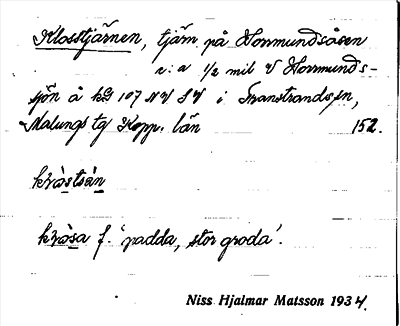 Klosstjärnen, tjärn på Horrmundsåsen
c:a 1/2 mil V Horrmunds-
sjön å kbl 107 NV SV i Transtrands sn,
Malungs tg Kopp. län 152.
kråstsän
kråsa f. 'padda, stor groda'.
Niss Hjalmar Matsson 1934.